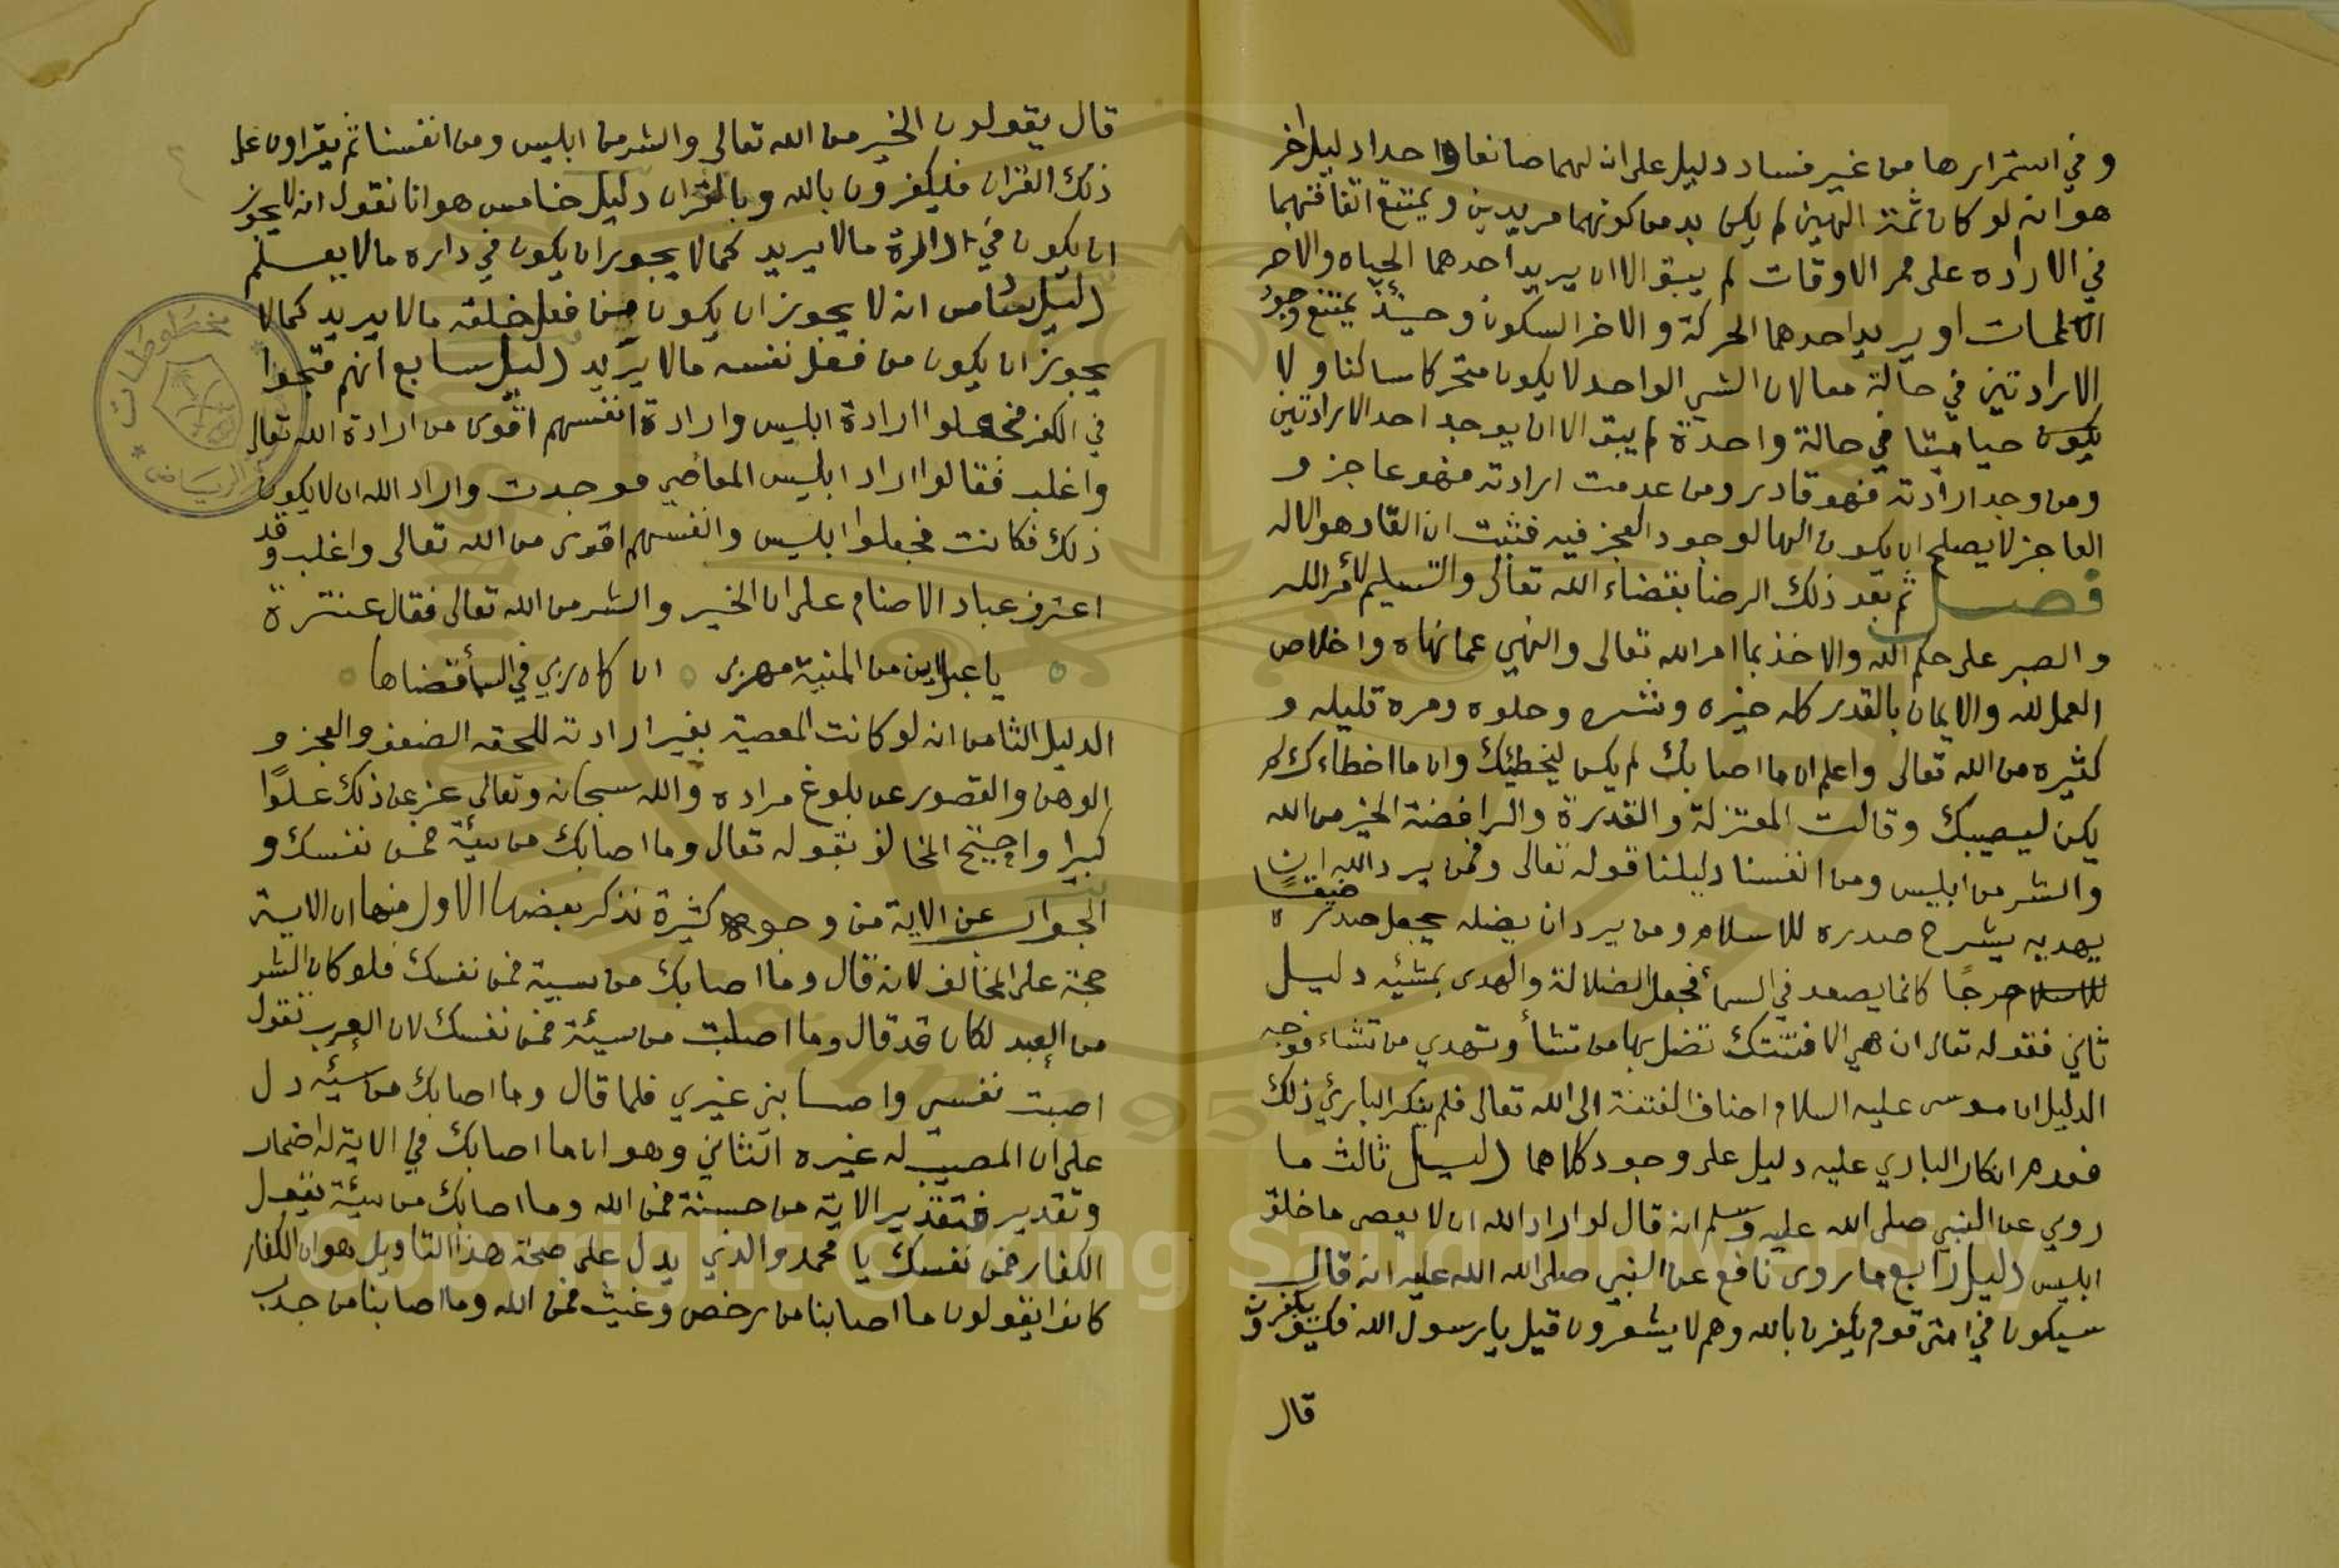 وفي استمرارها من غير فساد دليل على ان لهما صانعا واحدا دليل اخر
هو انه لو كان ثمة الهين لم يكن بد من كونهما مريدين ويمتنع اتفاقهما
في الاراده على ممر الاوقات لم يبق الا ان يريد احدهما الحياه والاخر
الممات او يريد احدهما الحركة والاخر السكون وحينئذ يمتنع وجود
الارادتين في حالة معا لان الشي الواحد لا يكون متحركا ساكنا ولا
يكون حيا ميتا في حالة واحدة لم يبق الا ان يوجد احد الارادتين
ومن وجد ارادته فهو قادر ومن عدمت ارادته فهو عاجز و
العاجز لا يصلح ان يكون الها لوجود العجز فيه فثبت ان القادر هو الاله
فصل ثم بعد ذلك الرضا بقضاء الله تعالى والتسليم لامر الله
والصبر على حكم الله والاخذ بما امر الله تعالى والنهي عما نهاه واخلاص
العمل لله والايمان بالقدر كله خيره وشره وحلوه ومره قليله و
كثيره من الله تعالى واعلم ان ما اصابك لم يكن ليخطئك وان ما اخطاءك لم
يكن ليصيبك وقالت المعتزلة والقدرة والرافضة الخير من الله
والشر من ابليس ومن انفسنا دليلنا قوله تعالى وفمن يرد الله ان
يهديه يشرح صدره للاسلام ومن يرد ان يضله يجعل صدره ضيقًا
للاسلام حرجًا كانما يصعد في السمأ فجعل الضلالة والهدى بمشئيه دليل
ثاني فقوله تعالى ان هي الا فتنتك تضل بها من تشأ وتهدي من تشاء فوجه
الدليل ان موسى عليه السلام اضاف الفتنة الى الله تعالى فلم ينكر الباريئ ذلك
فعدم انكار الباري عليه دليل على وجود كلاهما دليل ثالث ما
روي عن النبي صلى الله عليه وسلم انه قال لو اراد الله ان لا يعصى ما خلق
ابليس دليل رابع ما روى نافع عن النبي صلى الله الله عليه انه قال
سيكون في امتى قوم يكفرن بالله وهم لا يشعرون قيل يا رسول الله فكيف يكفرون
قال
قال يقولون الخير من الله تعالى والشر من ابليس ومن انفسنا ثم يقراون على
ذلك القران فليكفرون بالله وبالقران دليل خامس هو انا نقول انه لا يجوز
ان يكون في دائرة ما لا يريد كما لا يجوز ان يكون في داره ما لا يعسلم
دليل سادس انه لا يجوز ان يكون من فعل خلقه ما لا يريد كما لا
يجوز ان يكون من فعل نفسه ما لا يريد دليل سابع انهم فتجوا
في الكفر فجعلوا ارادة ابليس وارادة انفسهم اقوى من ارادة الله تعالى
واغلب فقالوا اراد ابليس المعاصي فوجدت واراد الله ان لا يكون
ذلك فكانت فجعلوا ابليس وانفسهم اقوى من الله تعالى واغلب وقد
اعترف عباد الاصنام على ان الخير والشر من الله تعالى فقال عنترة
يا عبل اين من المنية مهربي ان كان ربي في السمأ قضاها
الدليل الثامن انه لو كانت المعصية بغير ارادته للحقه الضعف والعجز و
الوهن والقصور عن بلوغ مراده والله سبحانه وتعالى عز عن ذلك علوًا
كبيرا واحتج المخالف بقوله تعال وما اصابك من سيئة فمن نفسك و
الجواب عن الاية من وجوه كثيرة نذكر بعضها الاول منها ان الاية
حجة على المخالف لانه قال وما اصابك من سيية فمن نفسك فلو كان الشر
من العبد لكان قد قال وما اصبت من سيئة فمن نفسك لان العرب تقول
اصبت نفسي واصابني غيري فلما قال وما اصابك من سيئه دل
على ان المصيب له غيره الثاني وهو ان ما اصابك في الاية له اضمار
وتقدير فتقدير الاية من حسنة فمن الله وما اصابك من سيئة بفعل
الكفار فمن نفسك يا محمد والذي يدل على صحة هذا التاويل هو ان الكفار
كانوا يقولون ما اصابنا من رخص وغيث فمن الله وما اصابنا من جدب
مخطوطات
الرياض
Copyright © King Saud University
1957